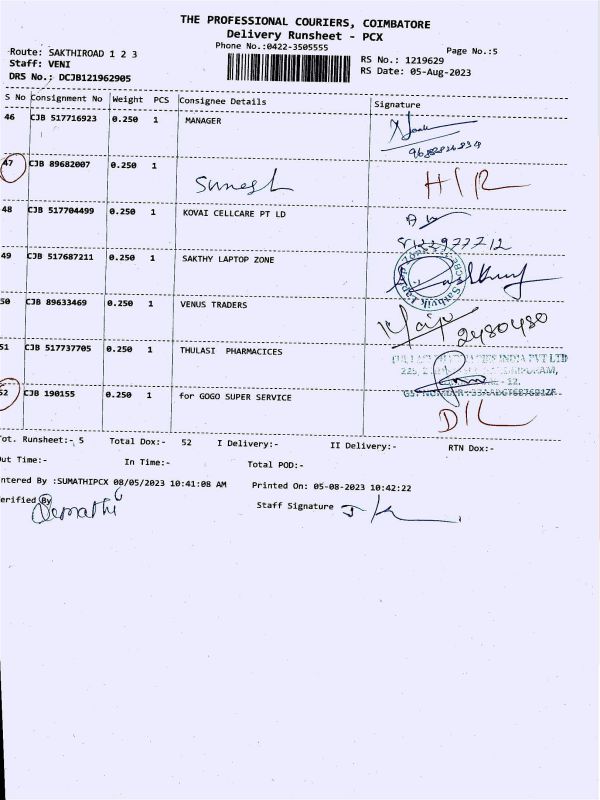 THE PROFESSIONAL COURIERS, COIMBATORE
Delivery Runsheet - PCX
Phone No.:0422-3505555
Page No.:5
Route: SAKTHIROAD 1 2 3
Staff: VENI
DRS No.: DCJB121962905
RS No.: 1219629
RS Date: 05-Aug-2023
S No Consignment No Weight PCS Consignee Details Signature
46 CJB 517716923 0.250 1 MANAGER
47 CJB 89682007 0.250 1
Suresh H/R
48 CJB 517704499 0.250 1 KOVAI CELLCARE PT LD
49 CJB 517687211 0.250 1 SAKTHY LAPTOP ZONE
50 CJB 89633469 0.250 1 VENUS TRADERS
2480480
51 CJB 517737705 0.250 1 THULASI PHARMACICES
INDIA PVT LTD
52 CJB 190155 0.250 1 for GOGO SUPER SERVICE
D/L
Tot. Runsheet:- 5 Total Dox:- 52 I Delivery:- II Delivery:- RTN Dox:-
Out Time:- In Time:- Total POD:-
ntered By :SUMATHIPCX 08/05/2023 10:41:08 AM Printed On: 05-08-2023 10:42:22
erified By
Staff Signature